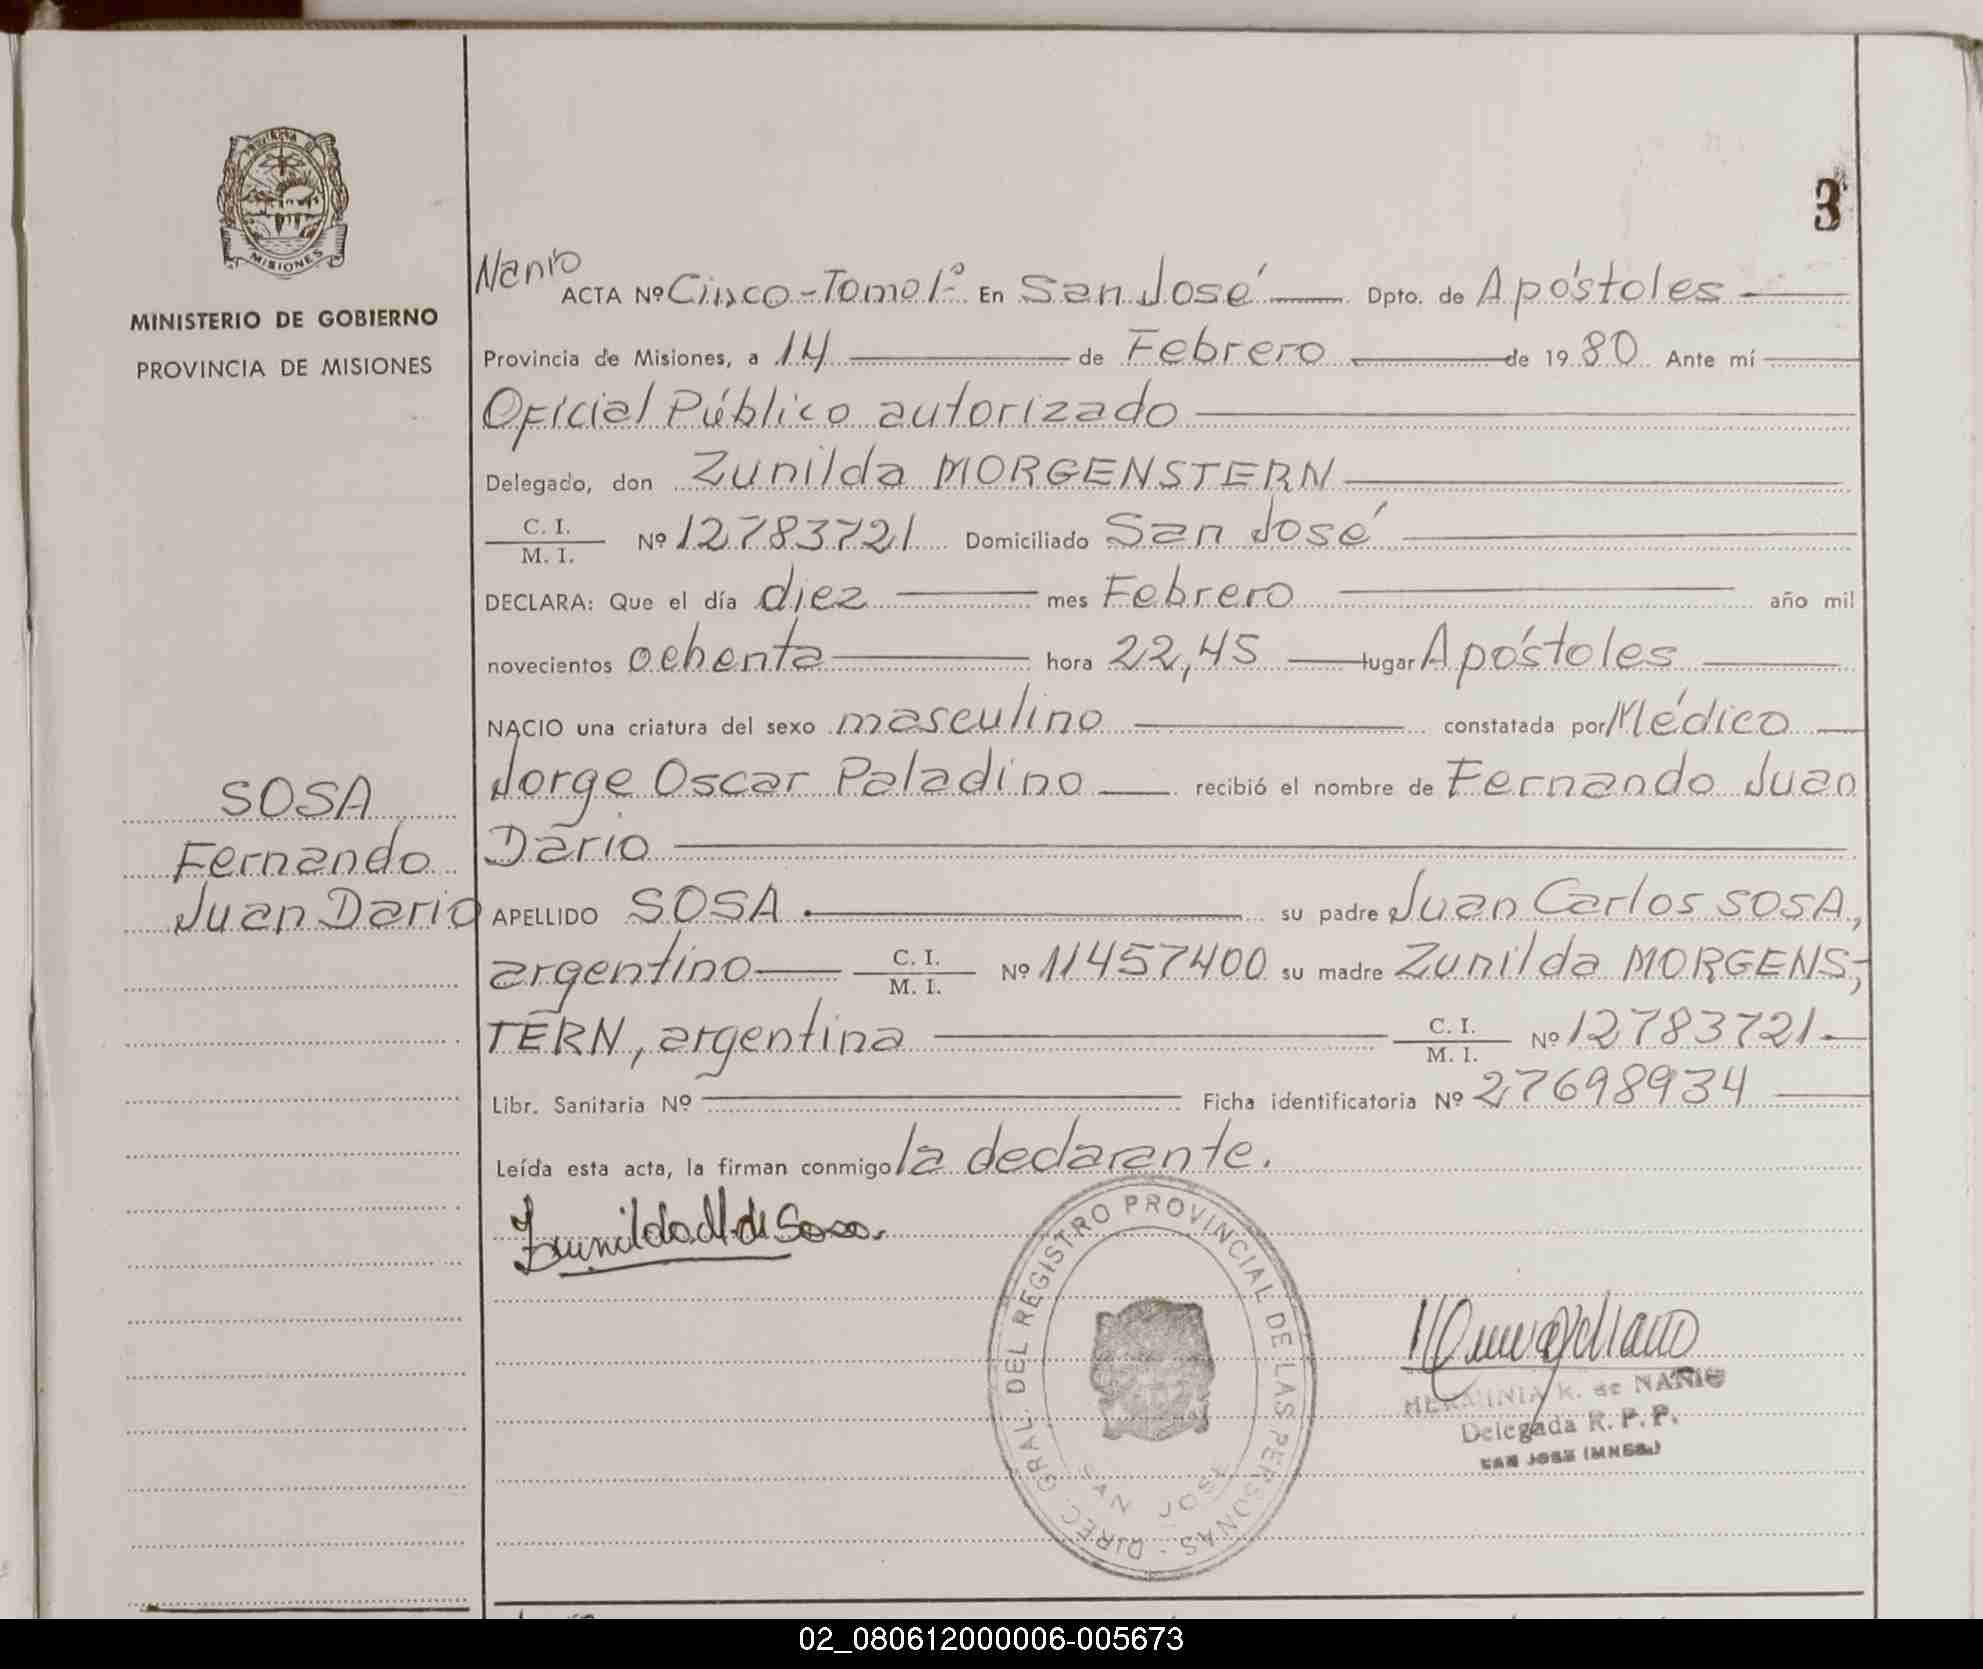 PROVINCIA DE
MISIONES
MINISTERIO DE GOBIERNO
PROVINCIA DE MISIONES
3
ACTA Nº Cinco - Tomo 1º En San José Dpto. de Apóstoles
Provincia de Misiones, a 14 de Febrero de 1980 Ante mí
Oficial Público autorizado
Delegado, don Zunilda MORGENSTERN
C. I. / M. I. Nº 12783721 Domiciliado San José
DECLARA: Que el día diez mes Febrero año mil
novecientos ochenta hora 22,45 lugar Apóstoles
NACIO una criatura del sexo masculino constatada por Médico
Jorge Oscar Paladino recibió el nombre de Fernando Juan
Dario
SOSA
Fernando
Juan Dario
APELLIDO SOSA su padre Juan Carlos SOSA,
argentino C. I. / M. I. Nº 11457400 su madre Zunilda MORGENS-
TERN, argentina C. I. / M. I. Nº 12783721
Libr. Sanitaria Nº Ficha identificatoria Nº 27698934
Leída esta acta, la firman conmigo la declarante.
Zunilda M. de Sosa.
DIREC. GRAL. DEL REGISTRO PROVINCIAL DE LAS PERSONAS -
SAN JOSE
HERMINIA K. de
Delegada R. P. P.
SAN JOSE (MNES.)
02_080612000006-005673